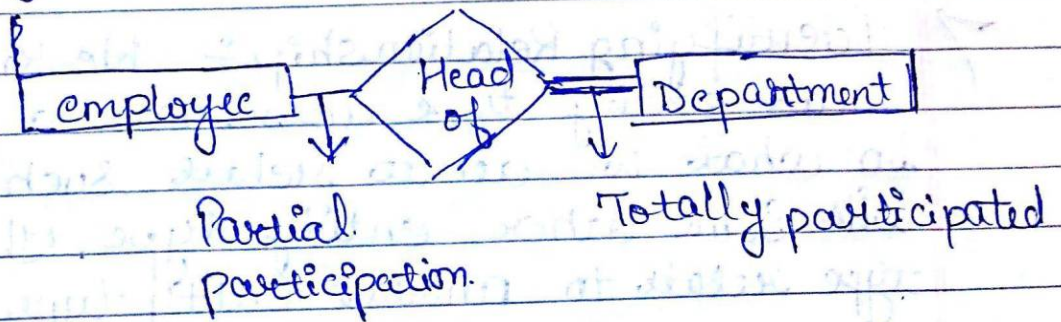 employee
Head
of
Department
Partial
participation.
Totally participated